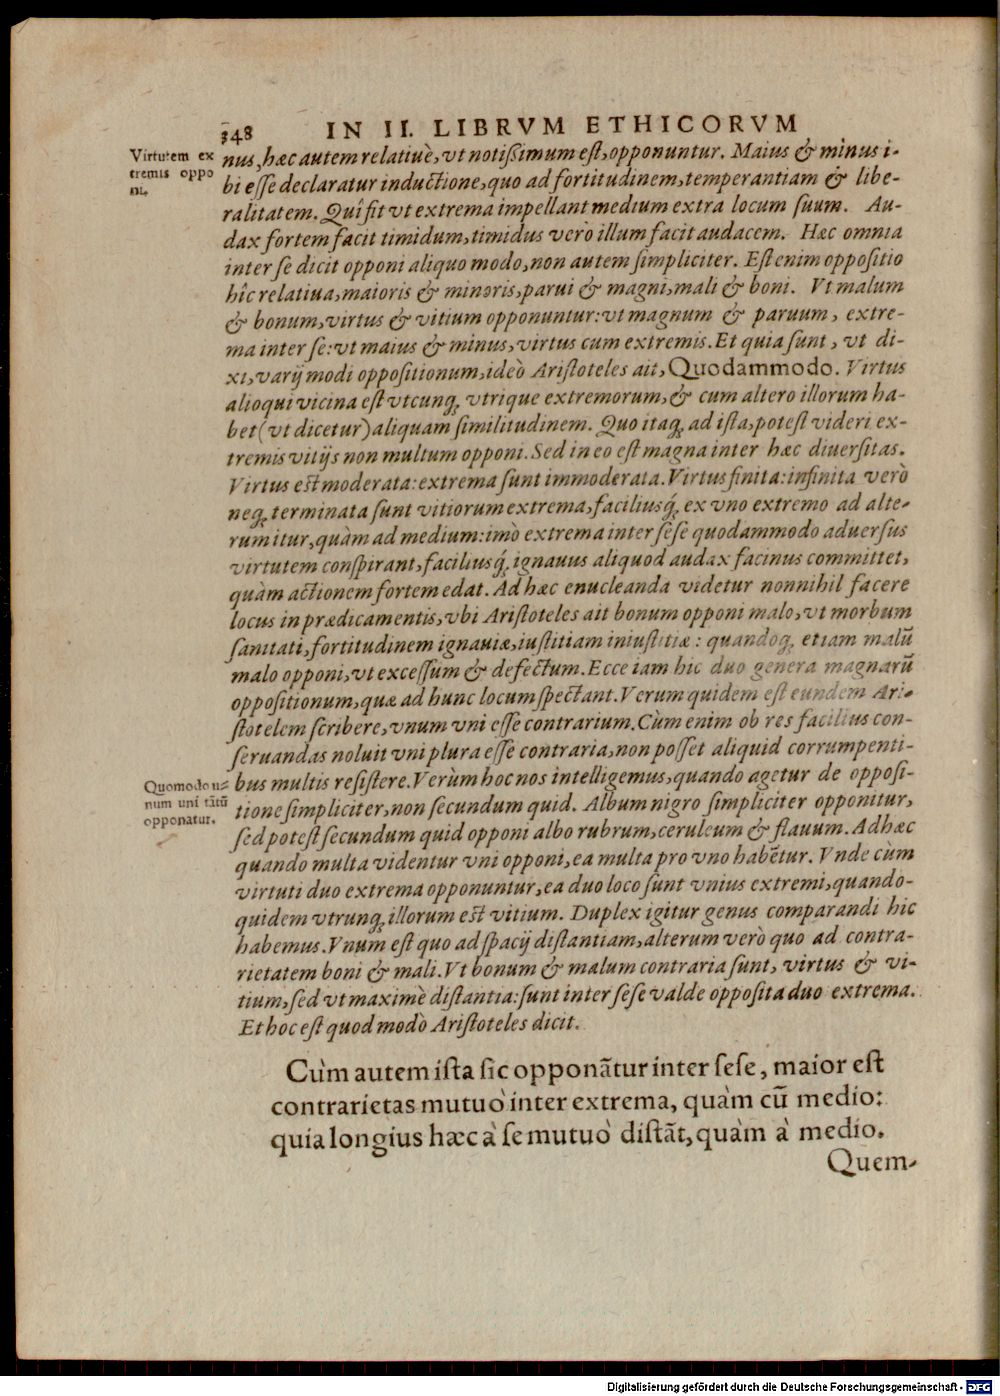 348 IN II. LIBRVM ETHICORVM
Virtutem ex
tremis oppo
ni.
nus, hæc autem relatiuè, vt notißimum est, opponuntur. Maius & minus i-
bi esse declaratur inductione, quo ad fortitudinem, temperantiam & libe-
ralitatem. Quî fit vt extrema impellant medium extra locum suum. Au-
dax fortem facit timidum, timidus vero illum facit audacem. Hæc omnia
inter se dicit opponi aliquo modo, non autem simpliciter. Est enim oppositio
hîc relatiua, maioris & minoris, parui & magni, mali & boni. Vt malum
& bonum, virtus & vitium opponuntur: vt magnum & paruum, extre-
ma inter se: vt maius & minus, virtus cum extremis. Et quia sunt, vt di-
xi, varij modi oppositionum, ideò Aristoteles ait, Quodammodo. Virtus
alioqui vicina est vtcunq; vtrique extremorum, & cum altero illorum ha-
bet (vt dicetur) aliquam similitudinem. Quo itaq; ad ista, potest videri ex-
tremis vitijs non multum opponi. Sed in eo est magna inter hæc diuersitas.
Virtus est moderata: extrema sunt immoderata. Virtus finita: infinita verò
neq; terminata sunt vitiorum extrema, faciliusq́; ex vno extremo ad alte-
rum itur, quàm ad medium: imò extrema inter sese quodammodo aduersus
virtutem conspirant, faciliusq́; ignauus aliquod audax facinus committet,
quàm actionem fortem edat. Ad hæc enucleanda videtur nonnihil facere
locus in prædicamentis, vbi Aristoteles ait bonum opponi malo, vt morbum
sanitati, fortitudinem ignauiæ, iustitiam iniustitiæ: quandoq; etiam malū
malo opponi, vt excessum & defectum. Ecce iam hic duo genera magnarū
oppositionum, quæ ad hunc locum spectant. Verum quidem est eundem Ari-
stotelem scribere, vnum vni esse contrarium. Cùm enim ob res facilius con-
seruandas noluit vni plura esse contraria, non posset aliquid corrumpenti-
Quomodo u-
num uni tātū
opponatur.
bus multis resistere. Verùm hoc nos intelligemus, quando agetur de opposi-
tione simpliciter, non secundum quid. Album nigro simpliciter opponitur,
sed potest secundum quid opponi albo rubrum, ceruleum & flauum. Ad hæc
quando multa videntur vni opponi, ea multa pro vno habētur. Vnde cùm
virtuti duo extrema opponuntur, ea duo loco sunt vnius extremi, quando-
quidem vtrunq; illorum est vitium. Duplex igitur genus comparandi hic
habemus. Vnum est quo ad spacij distantiam, alterum verò quo ad contra-
rietatem boni & mali. Vt bonum & malum contraria sunt, virtus & vi-
tium, sed vt maximè distantia: sunt inter sese valde opposita duo extrema.
Et hoc est quod modò Aristoteles dicit.
Cùm autem ista sic opponātur inter sese, maior est
contrarietas mutuò inter extrema, quàm cū medio:
quia longius hæc à se mutuò distāt, quàm à medio.
Quem-
Digitalisierung gefördert durch die Deutsche Forschungsgemeinschaft - DFG